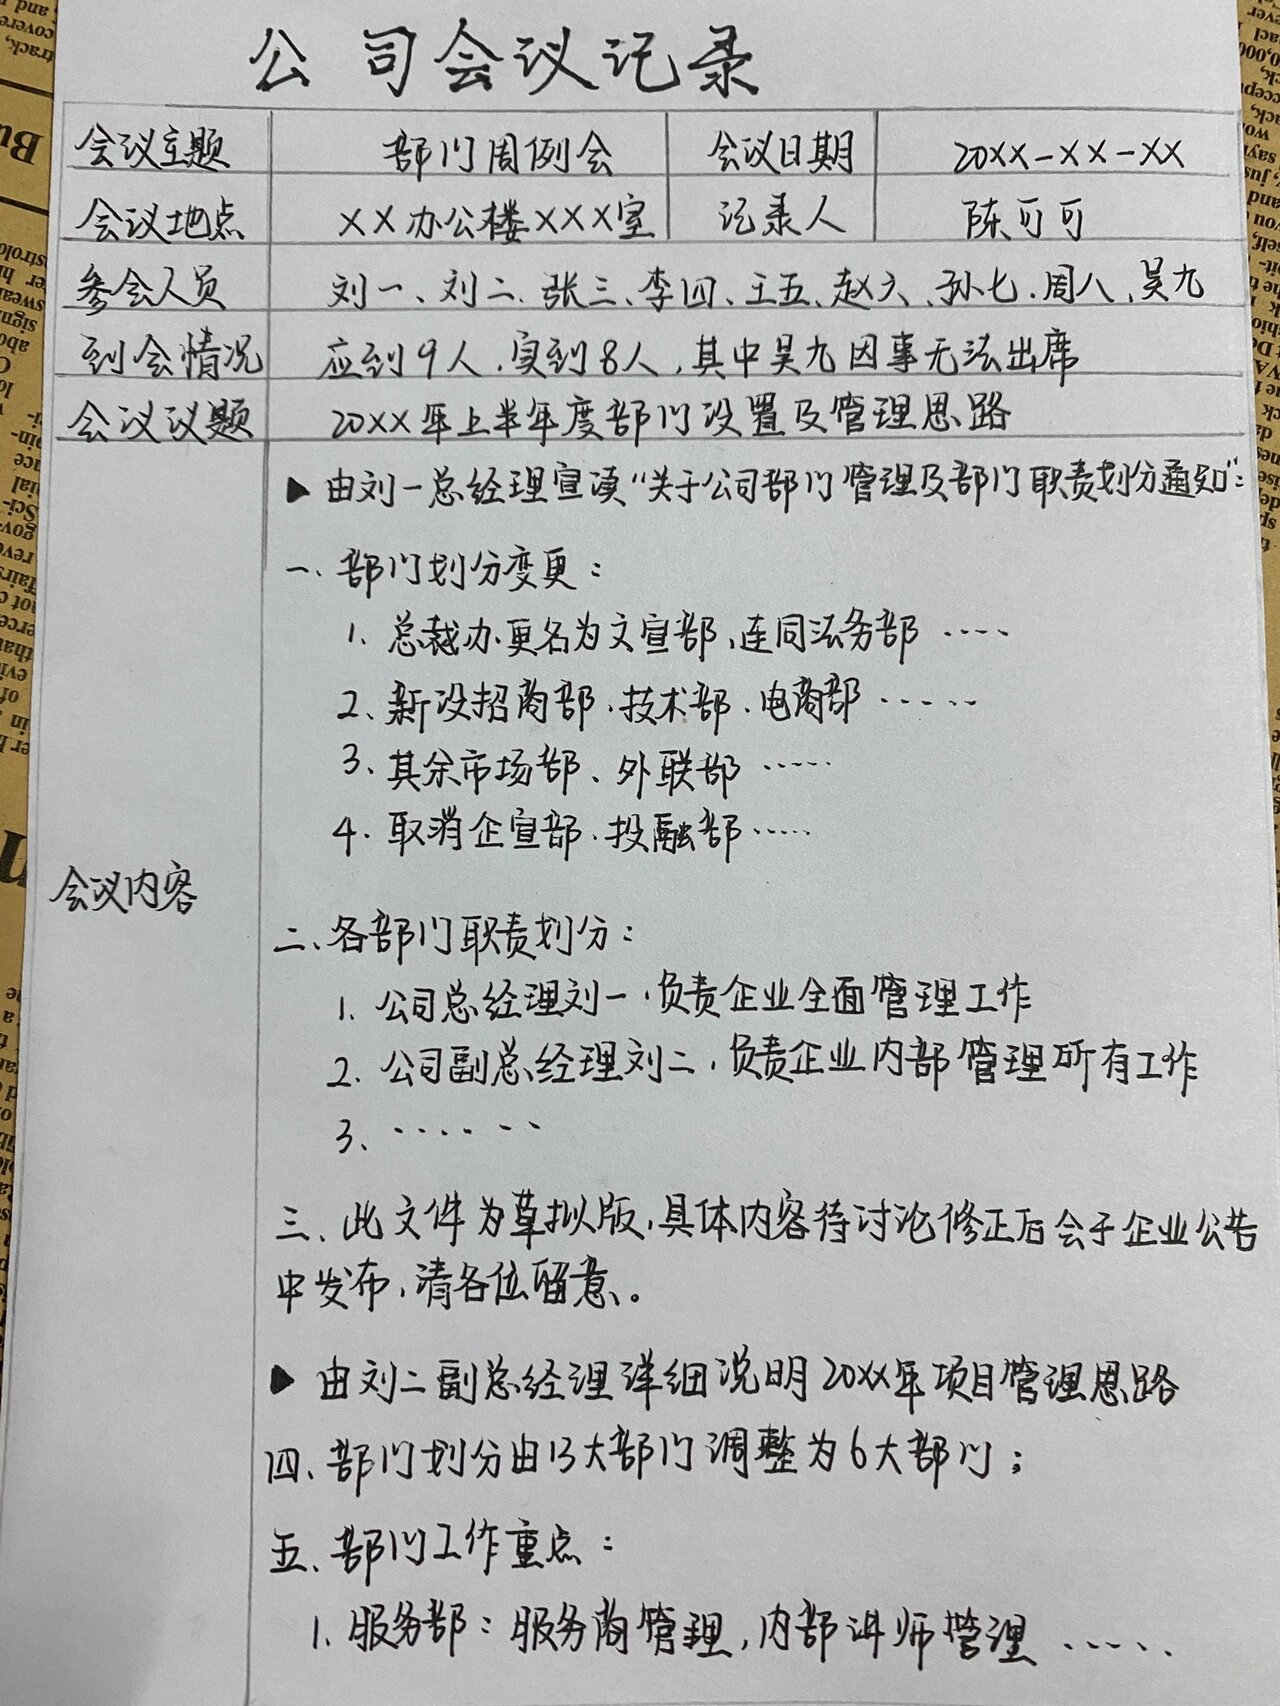 公司会议记录
会议主题 部门周例会 会议日期 20XX-XX-XX
会议地点 XX办公楼XXX室 记录人 陈可可
参会人员 刘一、刘二、张三、李四、王五、赵六、孙七、周八、吴九
到会情况 应到9人，实到8人，其中吴九因事无法出席
会议议题 20XX年上半年度部门设置及管理思路
会议内容
▶由刘一总经理宣读“关于公司部门管理及部门职责划分通知”：
一、部门划分变更：
1、总裁办更名为文宣部、连同法务部……
2、新设招商部、技术部、电商部……
3、其余市场部、外联部……
4、取消企宣部、投融部……
二、各部门职责划分：
1、公司总经理刘一，负责企业全面管理工作
2、公司副总经理刘二，负责企业内部管理所有工作
3、……
三、此文件为草拟版，具体内容待讨论修正后会于企业公告
中发布，请各位留意。
▶由刘二副总经理详细说明20XX年项目管理思路
四、部门划分由13大部门调整为6大部门；
五、部门工作重点：
1、服务部：服务商管理，内部讲师管理……